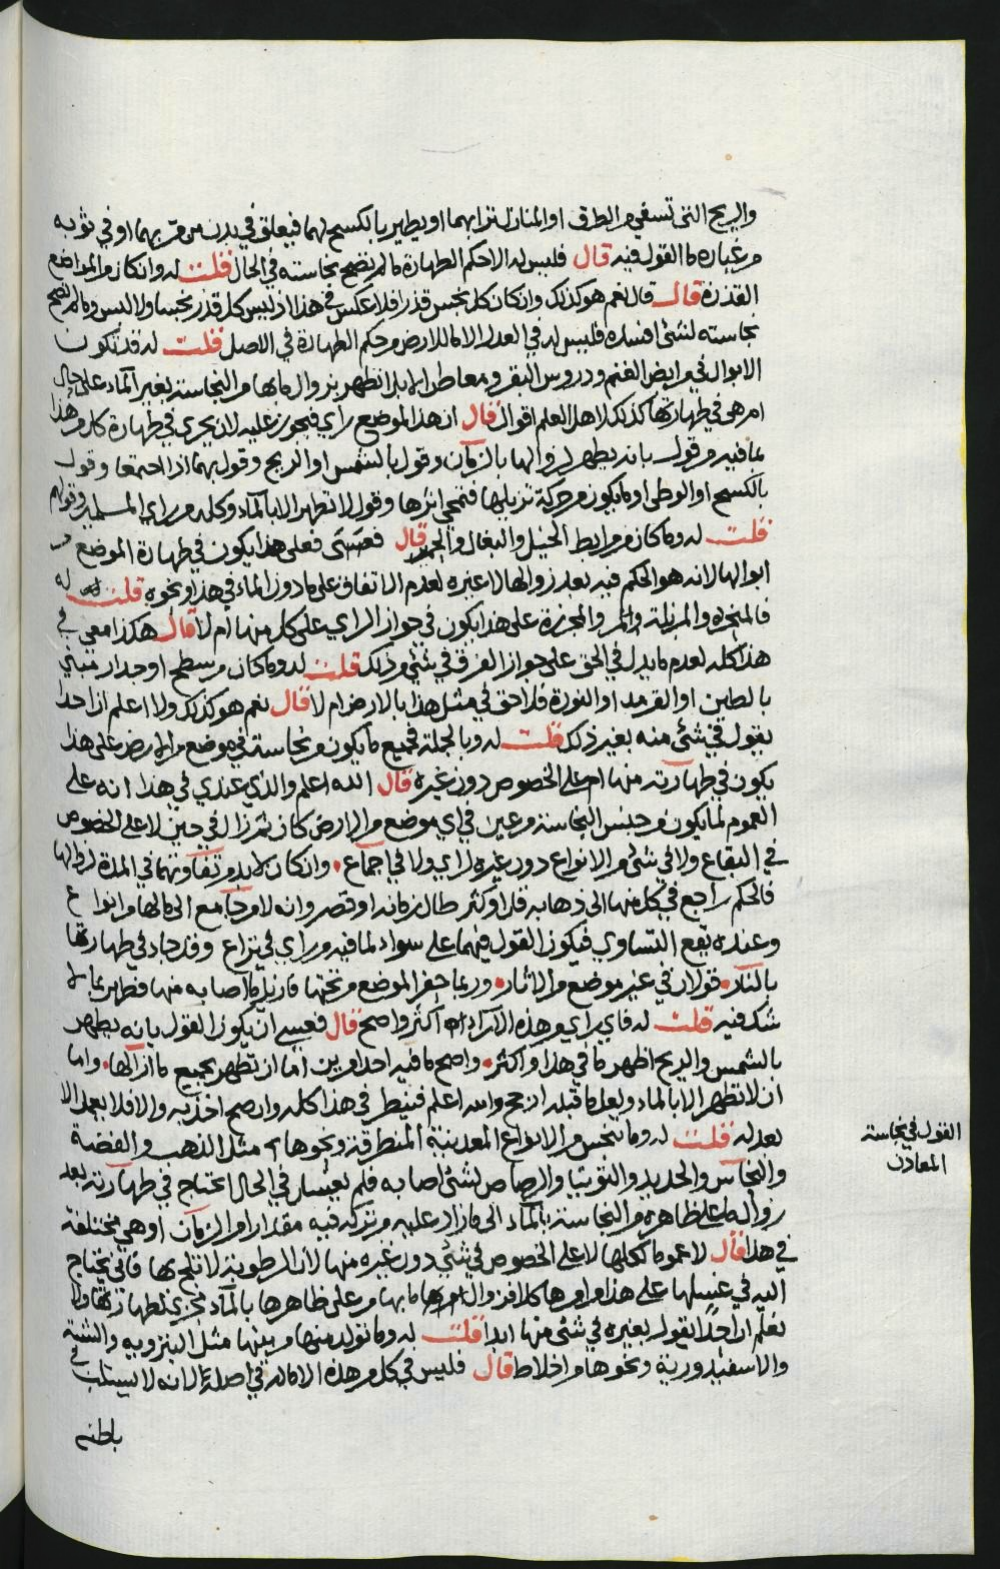 والريح التي تسفي من الطرق او المنازل ترابهما او يطير بالكسح لهما فيعلق في بدن من مر بهما او في ثوبه
من غباره ما القول فيه قال فليس له الا حكم الطهارة ما لم تصح نجاسته في الحال قلت له وان كان من المواضع
القذرة قال قال نعم هو كذلك وان كان كل نجس قذرا فلا عكس في هذا اذ ليس كل قذر نجسا ولا لبس وما لم تصح
نجاسته لشئ افسده فليس له في العدل الا ما للارض من حكم الطهارة في الاصل قلت له قد تكون
الابوال في مرابض الغنم ودروس البقر ومعاطن الابل انطهر بزوال ما بها من النجاسة بغير الماء على حال
ام هي في طهارتها كذلك لاهل العلم اقوال قال ان هذا الموضع راي فيجوز عليه لان يجري في طهارة كل من هذا
ما فيه من قول بانه يطهر لزوالها بالزمان وقول بالشمس او الريح وقول بهما اذا اجتمعا وقول
بالكسح او الوطي او ما يكون من حركة تزيلها فتمحي اثرها وقول لا تطهر الا بالماء وكله من راي المسلمين وقولهم
قلت له وما كان من مرابط الخيل والبغال والحمير قال فعسى فعلى هذا يكون في طهارة الموضع من
ابوالها لانه هو الحكم فيه بعد زوالها لا غيره لعدم الاتفاق على ما دون الماء في هذا ونحوه قلت له
فالمنحرة والمزبلة والممر والمجزرة على هذا يكون في جواز الراي على كل منها ام لا قال هكذا معي في
هذا كله لعدم ما يدل في الحق على جواز الفرق في شئ من ذلك قلت له وما كان من سطح او جدار مبني
بالطين او القرمد او النورة فلاحق في مثل هذا بالارض ام لا قال نعم هو كذلك ولا اعلم ان احدا
يقول في شئ منه بغير ذلك قلت له وبالجملة فجميع ما يكون من نجاسة في موضع من الارض على هذا
يكون في طهارته منها ام على الخصوص دون غيره قال الله اعلم والذي عندي في هذا انه على
العموم لما يكون من جنس النجاسة من عين في اي موضع من الارض كان ثم زال في حين لا على الخصوص
في البقاع ولا في شئ من الانواع دون غيره لراي ولا في اجماع وان كان لا بد من تفاوتهما في المدة لزوالها
فالحكم راجع في كل منها الى ذهابه قل او كثر طال زمانه او قصر وانه لا مرجع الى ما لها من انواع
وعنده يقع التساوي فيكون القول فيهما على سواء لما فيه من راي في نزاع وقد جاء في طهارتها
بالنار قولان في غير موضع من الاثار وربما حفر الموضع من تحتها فازيل ما اصابه منها فطهر بما لا
شك فيه قلت له فاي راي من هذه الاراء اكثر واصح قال فعسى ان يكون القول بانه يطهر
بالشمس والريح اظهر ما في هذا واكثر واصح ما فيه احد امرين اما ان تطهر بجميع ما ازالها واما
ان لا تطهر الا بالماء ولعل ما قبله ارجح والله اعلم فلينظر في هذا كله وان صح اخذ به والا فلا يعمل الا
بعدله قلت له وما تنجس من الانواع المعدنية المنطرقة ونحوها مثل الذهب والفضة
والنحاس والحديد والتوتيا والرصاص لشئ اصابه فلم يغسل في الحال ايحتاج في طهارته بعد
زوال ما على ظاهره من النجاسة بالماء الى ما زاد عليه من تركه فيه مقدارا من الزمان او هي مختلفة
في هذا قال لا عموما لكلها لا على الخصوص في شئ دون غيره منها لان الرطوبة لا تلج بها فانى يحتاج
اليه في غسلها على هذا من امرها كلا فزوال ما بها من على ظاهرها بالماء مجزي لطهارتها ولا
نعلم ان احدا يقول بغيره في شئ منها ابدا قلت له وما تولد منها من بينها مثل البنزويه والشبه
والاسفيدورية ونحوها من اخلاط قال فليس في كل من هذه الا ماله في اصله لانه لا يستلب في
باطنه
القول في نجاسة
المعادن